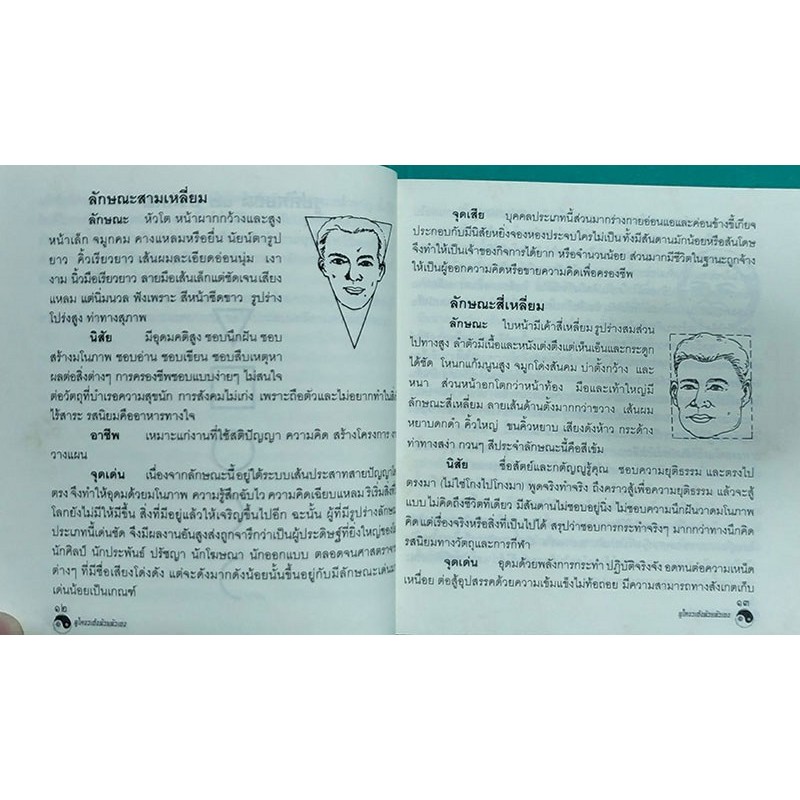 ลักษณะสามเหลี่ยม
ลักษณะ หัวโต หน้าผากกว้างและสูง
หน้าเล็ก จมูกคม คางแหลมหรือยื่น นัยน์ตารูป
ยาว คิ้วเรียวยาว เส้นผมละเอียดอ่อนนุ่ม เงา
งาม นิ้วมือเรียวยาว ลายมือเส้นเล็กแต่ชัดเจน เสียง
แหลม แต่นิ่มนวล ฟังเพราะ สีหน้าซีดขาว รูปร่าง
โปร่งสูง ท่าทางสุภาพ
นิสัย มีอุดมคติสูง ชอบนึกฝัน ชอบ
สร้างมโนภาพ ชอบอ่าน ชอบเขียน ชอบสืบเหตุหา
ผลต่อสิ่งต่างๆ การครองชีพชอบแบบง่ายๆ ไม่สนใจ
ต่อวัตถุที่บำเรอความสุขนัก การสังคมไม่เก่ง เพราะถือตัวและไม่อยากทำ
ไร้สาระ รสนิยมคืออาหารทางใจ
อาชีพ เหมาะแก่งานที่ใช้สติปัญญา ความคิด สร้างโครงการ
วางแผน
จุดเด่น เนื่องจากลักษณะนี้อยู่ใต้ระบบเส้นประสาทสายปัญญา
ตรง จึงทำให้อุดมด้วยมโนภาพ ความรู้สึกฉับไว ความคิดเฉียบแหลม ริเริ่มสิ่งที่
โลกยังไม่มีให้มีขึ้น สิ่งที่มีอยู่แล้วให้เจริญขึ้นไปอีก ฉะนั้น ผู้ที่มีรูปร่างลักษณะ
ประเภทนี้เด่นชัด จึงมีผลงานอันสูงส่งถูกจารึกว่าเป็นผู้ประดิษฐ์ที่ยิ่งใหญ่ของ
นักศิลป์ นักประพันธ์ ปรัชญา นักโฆษณา นักออกแบบ ตลอดจนศาสตราจารย์
ต่างๆ ที่มีชื่อเสียงโด่งดัง แต่จะดังมากดังน้อยนั้นขึ้นอยู่กับมีลักษณะเด่น
เด่นน้อยเป็นเกณฑ์
๑๒
ดูโหงวเฮ้งด้วยตัวเอง
จุดเสีย บุคคลประเภทนี้ส่วนมากร่างกายอ่อนแอและค่อนข้างขี้เกียจ
ประกอบกับมีนิสัยหยิ่งจองหองประจบใครไม่เป็น ทั้งมีสันดานมักน้อยหรือสันโดษ
จึงทำให้เป็นเจ้าของกิจการได้ยาก หรือจำนวนน้อย ส่วนมากมีชีวิตในฐานะถูกจ้าง
ให้เป็นผู้ออกความคิดหรือขายความคิดเพื่อครองชีพ
ลักษณะสี่เหลี่ยม
ลักษณะ ใบหน้ามีเค้าสี่เหลี่ยม รูปร่างสมส่วน
ไปทางสูง ลำตัวมีเนื้อและหนังเต่งตึงแต่เห็นเอ็นและกระดูก
ได้ชัด โหนกแก้มนูนสูง จมูกโด่งสันคม บ่าตั้งกว้าง และ
หนา ส่วนหน้าอกโตกว่าหน้าท้อง มือและเท้าใหญ่มี
ลักษณะสี่เหลี่ยม ลายเส้นด้านตั้งมากกว่าขวาง เส้นผม
หยาบดกดำ คิ้วใหญ่ ขนคิ้วหยาบ เสียงดังห้าว กระด้าง
ท่าทางสง่า กวนๆ สีประจำลักษณะนี้คือสีเข้ม
นิสัย ซื่อสัตย์และกตัญญูรู้คุณ ชอบความยุติธรรม และตรงไป
ตรงมา (ไม่ใช่โกงไปโกงมา) พูดจริงทำจริง ถึงคราวสู้เพื่อความยุติธรรม แล้วจะสู้
แบบไม่คิดถึงชีวิตทีเดียว มีสันดานไม่ชอบอยู่นิ่ง ไม่ชอบความนึกฝันวาดมโนภาพ
คิดแต่เรื่องจริงหรือสิ่งที่เป็นไปได้ สรุปว่าชอบการกระทำจริงๆ มากกว่าทางนึกคิด
รสนิยมทางวัตถุและการกีฬา
จุดเด่น อุดมด้วยพลังการกระทำ ปฏิบัติจริงจัง อดทนต่อความเหน็ด
เหนื่อย ต่อสู้อุปสรรคด้วยความเข้มแข็งไม่ท้อถอย มีความสามารถทางสังเกตเก็บ
๑๓
ดูโหงวเฮ้งด้วยตัวเอง